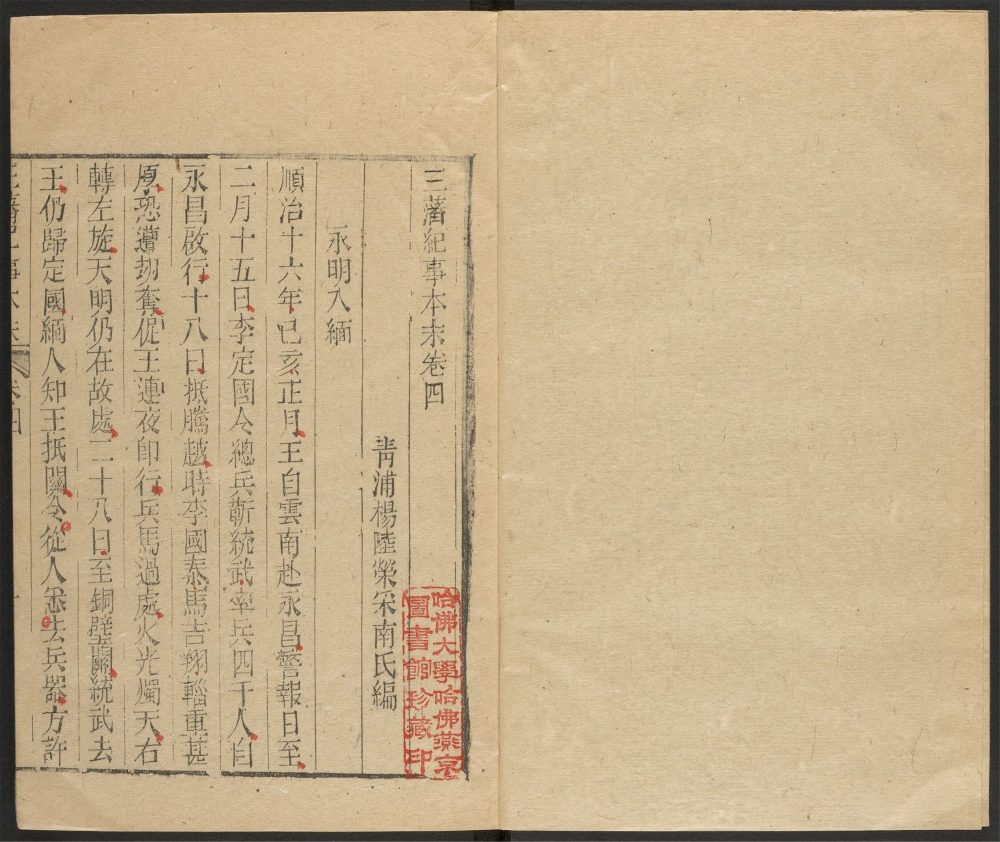 三藩紀事本末卷四
青浦楊陸榮采南氏編
哈佛大學哈佛燕京
圖書館珍藏印
永明入緬
順治十六年己亥正月王自雲南赴永昌警報日至
二月十五日李定國令總兵靳統武率兵四千人自
永昌啟行十八日抵騰越時李國泰馬吉翔輜重甚
厚恐遭刼奪促王連夜卽行兵馬過處火光燭天右
轉左旋天明仍在故處二十八日至銅壁關統武去
王仍歸定國緬人知王抵關令從人悉去兵器方許
三藩紀事本末 卷四